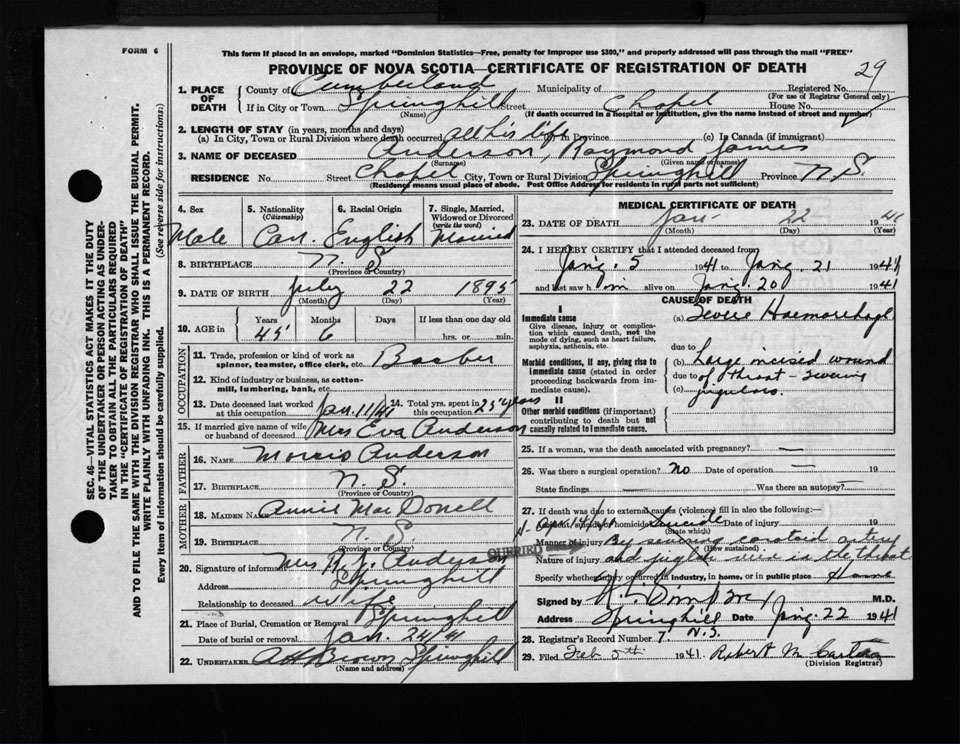 FORM 6
This form if placed in an envelope, marked "Dominion Statistics—Free, penalty for improper use $300," and properly addressed will pass through the mail "FREE"
PROVINCE OF NOVA SCOTIA—CERTIFICATE OF REGISTRATION OF DEATH
29
1. PLACE OF DEATH County of Cumberland Municipality of Registered No.
(For use of Registrar General only)
If in City or Town Springhill Street Chapel House No.
(Name) (If death occurred in a hospital or institution, give the name instead of street and number)
2. LENGTH OF STAY (in years, months and days)
(a) In City, Town or Rural Division where death occurred all his life Province (c) In Canada (if immigrant)
3. NAME OF DECEASED Anderson, Raymond James
(Surname) (Given name or names)
RESIDENCE No. Street Chapel City, Town or Rural Division Springhill Province N.S.
(Residence means usual place of abode. Post Office Address for residents in rural parts not sufficient)
4. Sex Male
5. Nationality (Citizenship) Can.
6. Racial Origin English
7. Single, Married, Widowed or Divorced (write the word) Married
8. BIRTHPLACE N. S.
(Province or Country)
9. DATE OF BIRTH July 22 1895
(Month) (Day) (Year)
10. AGE in Years Months Days If less than one day old
45 6 hrs. or min.
OCCUPATION
11. Trade, profession or kind of work as spinner, teamster, office clerk, etc. Barber
12. Kind of industry or business, as cotton-mill, lumbering, bank, etc.
13. Date deceased last worked at this occupation Jan. 11/41
14. Total yrs. spent in this occupation 25 years
15. If married give name of wife or husband of deceased Mrs Eva Anderson
FATHER
16. NAME Morris Anderson
17. BIRTHPLACE N. S.
(Province or Country)
MOTHER
18. MAIDEN NAME Annie MacDonell
19. BIRTHPLACE N. S.
(Province or Country)
20. Signature of informant Mrs R. J. Anderson
Address Springhill
Relationship to deceased wife
21. Place of Burial, Cremation or Removal Springhill
Date of burial or removal Jan. 24/41
22. UNDERTAKER A H Brown, Springhill
(Name and address)
MEDICAL CERTIFICATE OF DEATH
23. DATE OF DEATH Jan 22 1941
(Month) (Day) (Year)
24. I HEREBY CERTIFY that I attended deceased from
Jan'y. 5 1941 to Jan'y. 21 1941
and last saw him alive on Jan'y. 20 1941
CAUSE OF DEATH
Immediate cause
Give disease, injury or complication which caused death, not the mode of dying, such as heart failure, asphyxia, asthenia, etc.
(a) Severe Haemorrhage
due to
Morbid conditions, if any, giving rise to immediate cause (stated in order proceeding backwards from immediate cause).
(b) Large incised wound
due to of throat - severing
(c) jugulars.
II
Other morbid conditions (if important) contributing to death but not causally related to immediate cause.
25. If a woman, was the death associated with pregnancy? —
26. Was there a surgical operation? no Date of operation — 19
State findings Was there an autopsy? —
27. If death was due to external causes (violence) fill in also the following:—
Accident, suicide or homicide? Suicide Date of injury 19
(State which)
Manner of injury By severing carotid artery
(How sustained)
Nature of injury and jugular vein in the throat
QUERIED
Specify whether injury occurred in industry, in home, or in public place Home
Signed by M.D.
Address Springhill N.S. Date Jan'y. 22 1941
28. Registrar's Record Number 7.
29. Filed Feb 5th 1941 Robert M
(Division Registrar)
SEC. 46—VITAL STATISTICS ACT MAKES IT THE DUTY
OF THE UNDERTAKER OR PERSON ACTING AS UNDER-
TAKER TO OBTAIN ALL THE PARTICULARS REQUIRED
IN THE "CERTIFICATE OF REGISTRATION OF DEATH"
AND TO FILE THE SAME WITH THE DIVISION REGISTRAR WHO SHALL ISSUE THE BURIAL PERMIT.
WRITE PLAINLY WITH UNFADING INK. THIS IS A PERMANENT RECORD.
Every item of information should be carefully supplied. (See reverse side for instructions.)